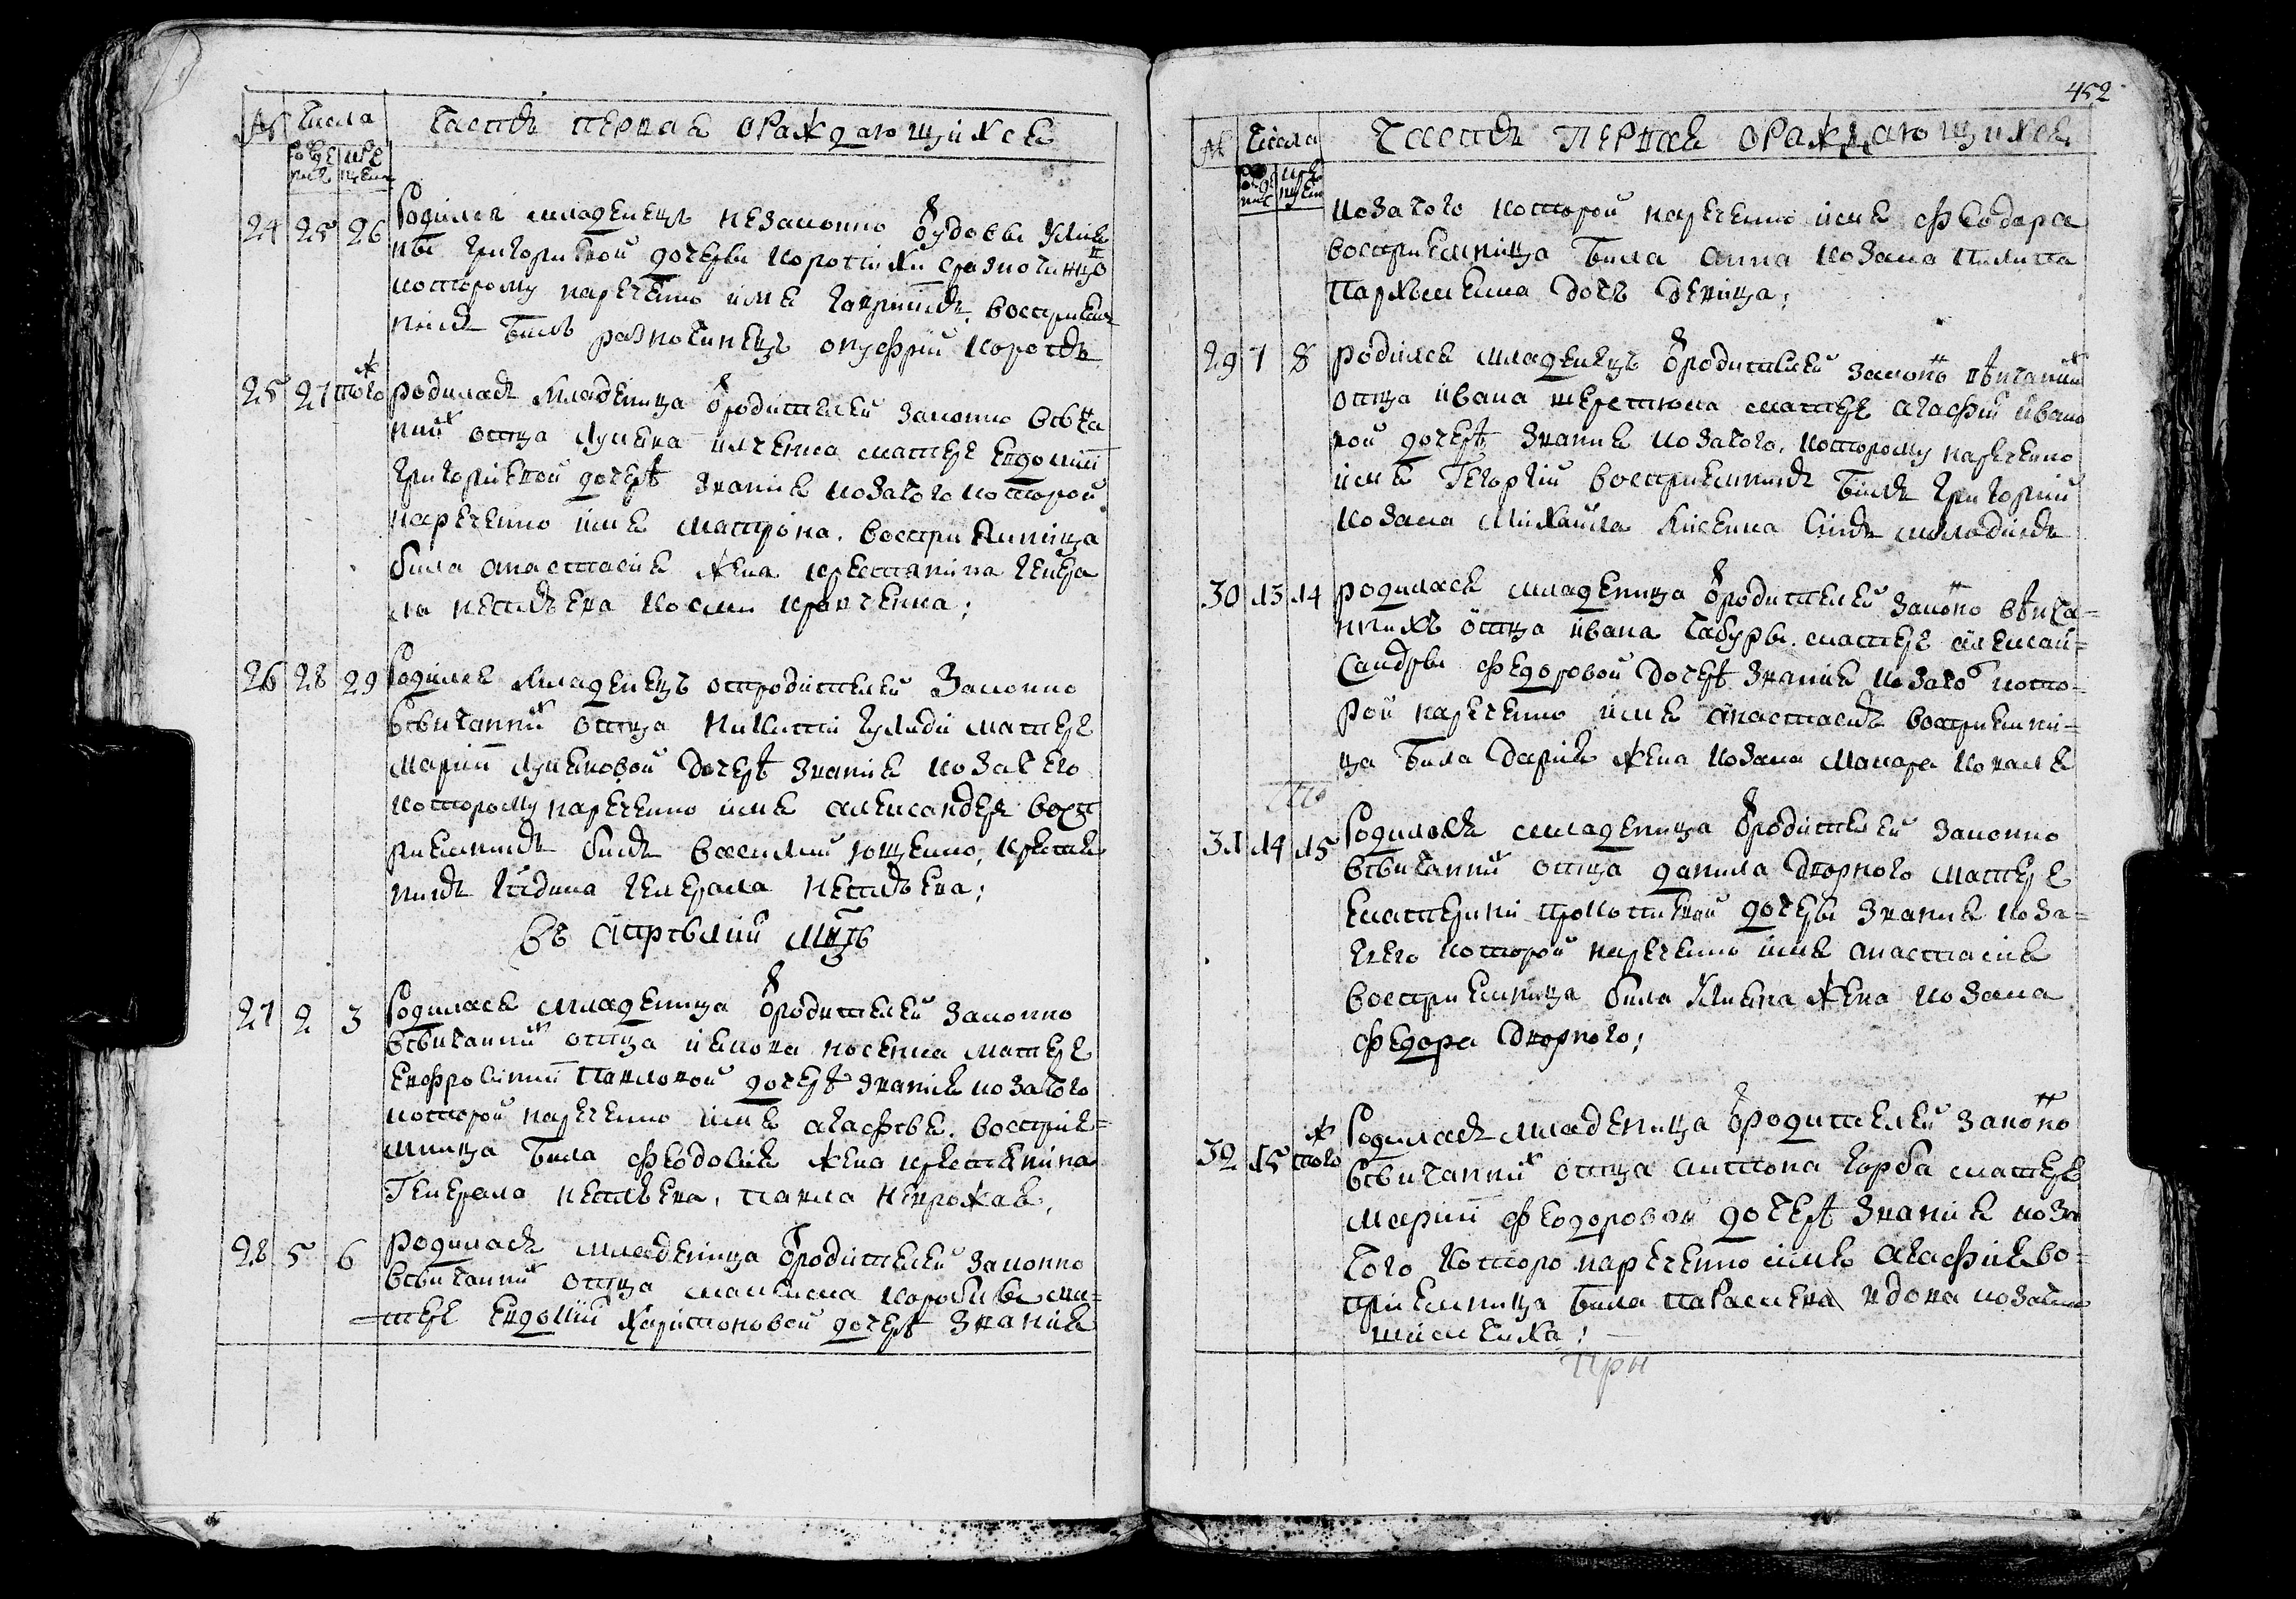 № Числа Часть первая о раждающихся
рожде кре
ния щения
24 25 26 Родился младенецъ незаконно ѿ удовы Улия
ны Григориевой дочеры Коротихи разночинцо
которому наречено имя Гавриилъ, восприем
никъ билъ разночинецъ онуфрий Коротъ
25 27 того ж родилась младеница ѿ родителей законно вѣнча
них отца Лукяна матере Евдокии
Григориевой дочерѣ звания козачого которой
наречено имя матрона. восприемница
била анастасия жена крестянина генера
ла Кравченка;
26 28 29 Родился младенецъ от родителей законно
вѣнчанних отца Никити матере
Марии Лукяновой дочерѣ звания козачего
которому наречено имя александеръ восп
риемникъ билъ василий Ющенко, крестя
нинъ генерала
въ Апрѣлии мцѣ
27 2 3 Родилась младеница ѿ родителей законно
вѣнчанних отца якова носенка матере
Евфросинии Павловой дочерѣ звания козачого
которой наречено имя агафия. восприе=
мница била феодосия жена крестянина
Генерала павла
28 5 6 родилась младеница ѿ родителей законно
вѣнчанних отца максима ма=
тере Евдокии Харитоновой дочерѣ звания
452
№ Числа Часть первая о раждающихся
рожде кре
ния щения
козачого которой наречено имя феодора
восприемница била анна козака Пилипа
Пархоменка дочь девица;
29 7 8 родился младенецъ ѿ родителей законно вѣнчаних
отца ивана шерстюка матере агафии ивано
вой дочерѣ звания козачого, которому наречено
имя Георгий восприемникъ билъ григорий
козака Михайла синъ
30 13 14 родилася младеница ѿ родителей законно вѣнча=
ннихъ отца ивана чабуры матере алексан=
сандры федоровой дочерѣ звания козачо кото=
рой наречено имя анастасия восприемни=
ца била Дария жена козака Макара коваля
31 14 15 Родилася младеница ѿ родителей законно
вѣнчанних отца данила Дворного матере
екатерини прокопиевой дочеры звания коза=
чего которой наречено имя анастасия
восприемница била Улияна жена козака
федора Дворного;
32 15 того ж Родилась младеница ѿ родителей законно
вѣнчанних отца антона горба матере
марии феодоровой дочерѣ звания коза
чого которо наречено имя агафия во=
сприемница била параскева вдова козачка

при